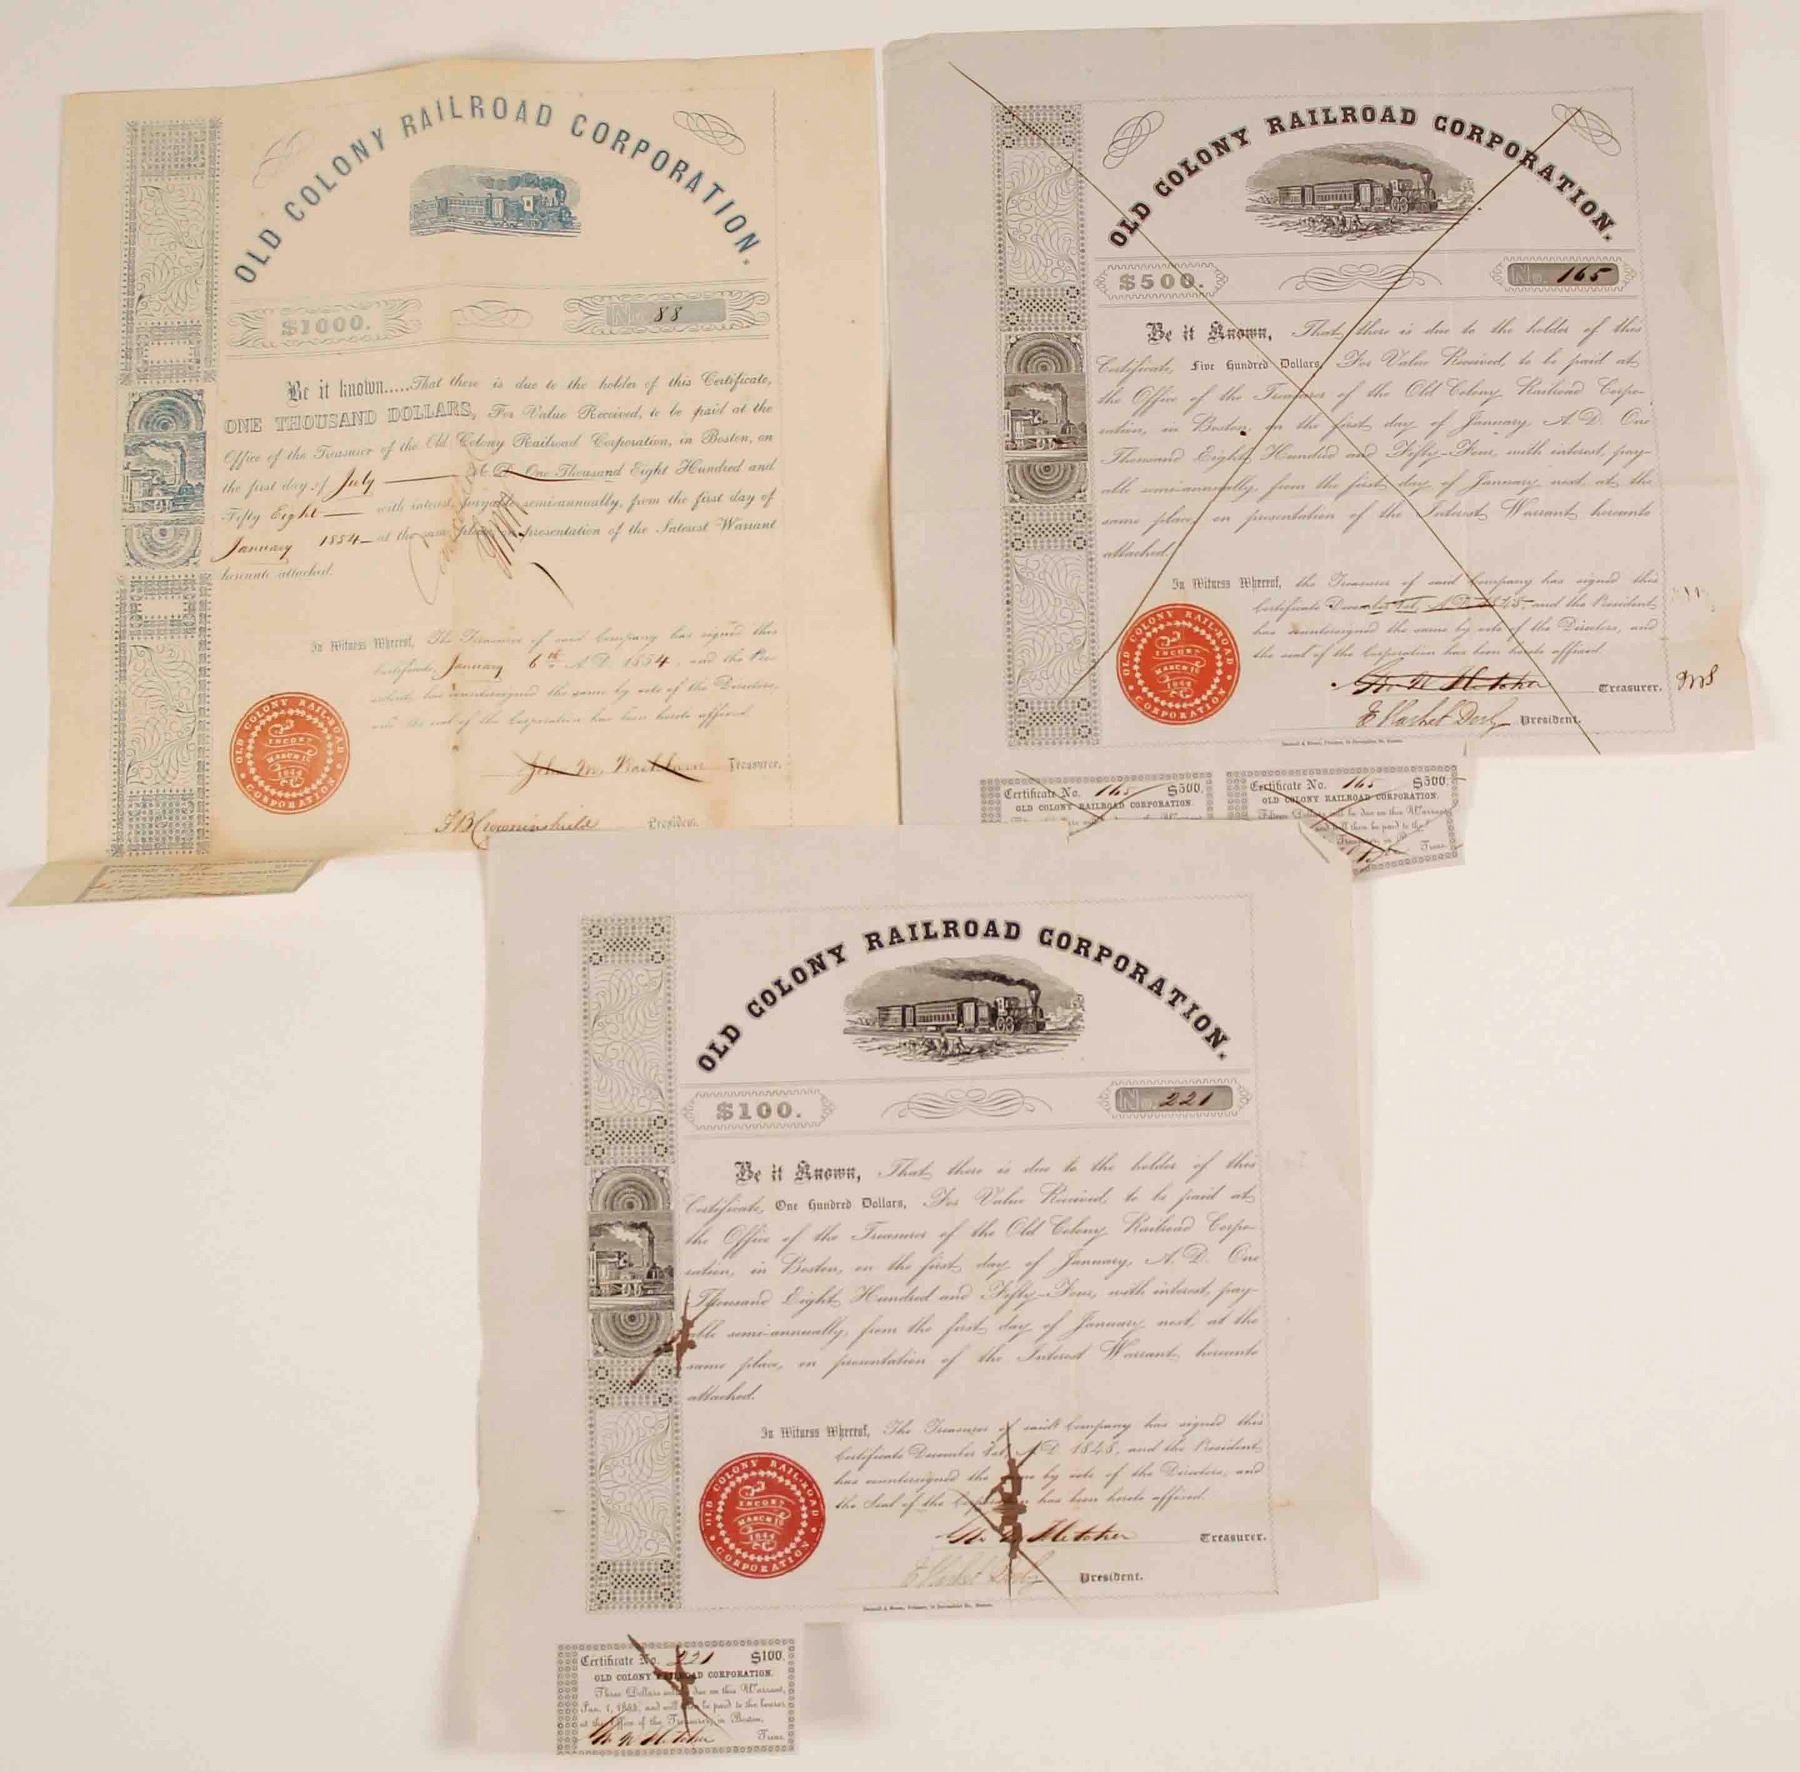 OLD COLONY RAILROAD CORPORATION.
$1000.
No. 88
Be it known.....That there is due to the holder of this Certificate,
ONE THOUSAND DOLLARS, For Value Received, to be paid at the
Office of the Treasurer of the Old Colony Railroad Corporation, in Boston, on
the first day of July A D One Thousand Eight Hundred and
Fifty Eight with interest, payable semi-annually, from the first day of
January 1854 at the same place, on presentation of the Interest Warrant
hereunto attached.
In Witness Whereof, The Treasurer of said Company has signed this
Certificate, January 6th A.D. 1854, and the Pre-
sident, has countersigned the same by vote of the Directors,
and the seal of the Corporation has been hereto affixed.
OLD COLONY RAIL-ROAD CORPORATION
INCORP.
MARCH 16
1844
Treasurer.
President.
OLD COLONY RAILROAD CORPORATION.
$500.
No. 165
Be it Known, That there is due to the holder of this
Certificate, Five Hundred Dollars, For Value Received, to be paid at
the Office of the Treasurer of the Old Colony Railroad Corpo-
ration, in Boston, on the first day of January, A. D. One
Thousand Eight Hundred and Fifty-Four, with interest, pay-
able semi-annually, from the first day of January next, at the
same place, on presentation of the Interest Warrant hereunto
attached.
In Witness Whereof, the Treasurer of said Company has signed this
Certificate December 1st, A.D. 1848, and the President
has countersigned the same by vote of the Directors, and
the seal of the Corporation has been hereto affixed.
OLD COLONY RAIL-ROAD CORPORATION
INCORP.
MARCH 16
1844
Fletcher Treasurer.
President.
Certificate No. 165 $500.
OLD COLONY RAILROAD CORPORATION.
Certificate No. 165 $500.
OLD COLONY RAILROAD CORPORATION.
Fifteen Dollars will be due on this Warrant
and will then be paid to the
Treas.
OLD COLONY RAILROAD CORPORATION.
$100.
No. 221
Be it Known, That there is due to the holder of this
Certificate, One Hundred Dollars, For Value Received, to be paid at
the Office of the Treasurer of the Old Colony Railroad Corpo-
ration, in Boston, on the first day of January, A. D. One
Thousand Eight Hundred and Fifty-Four, with interest, pay-
able semi-annually, from the first day of January next, at the
same place, on presentation of the Interest Warrant hereunto
attached.
In Witness Whereof, The Treasurer of said Company has signed this
Certificate December 1st, A.D. 1848, and the President
has countersigned the same by vote of the Directors, and
the Seal of the Corporation has been hereto affixed.
OLD COLONY RAIL-ROAD CORPORATION
INCORP.
MARCH 16
1844
Fletcher Treasurer.
President.
Certificate No. 221 $100.
OLD COLONY RAILROAD CORPORATION.
Three Dollars will be due on this Warrant,
Jan. 1, and will then be paid to the bearer
at the Office of the Treasurer, in Boston.
Fletcher Treas.